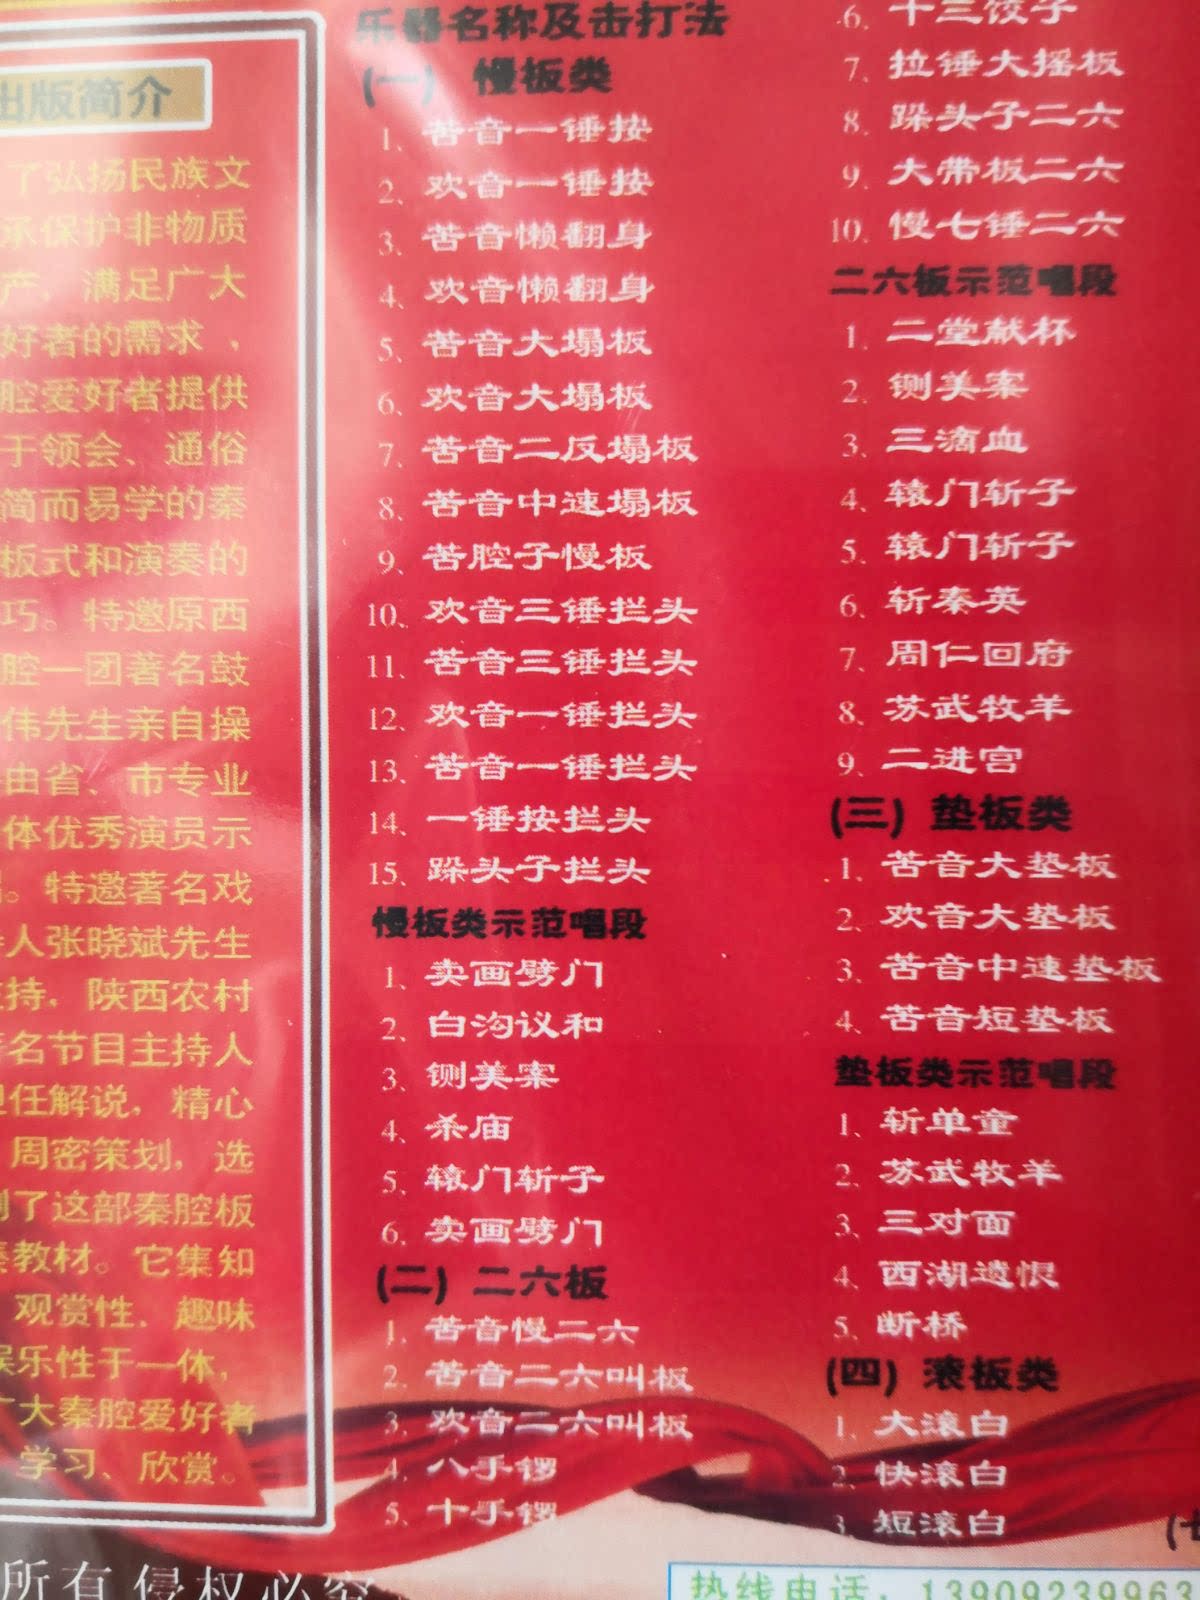 出版简介
了弘扬民族文
承保护非物质
产，满足广大
好者的需求，
腔爱好者提供
于领会、通俗
简而易学的秦
板式和演奏的
巧。特邀原西
腔一团著名鼓
伟先生亲自操
由省、市专业
体优秀演员示
。特邀著名戏
人张晓斌先生
持，陕西农村
著名节目主持人
担任解说，精心
周密策划，选
制了这部秦腔板
奏教材。它集知
观赏性，趣味
娱乐性于一体，
广大秦腔爱好者
学习、欣赏。
乐器名称及击打法
(一) 慢板类
1、苦音一锤按
2、欢音一锤按
3、苦音懒翻身
4、欢音懒翻身
5、苦音大塌板
6、欢音大塌板
7、苦音二反塌板
8、苦音中速塌板
9、苦腔子慢板
10、欢音三锤拦头
11、苦音三锤拦头
12、欢音一锤拦头
13、苦音一锤拦头
14、一锤按拦头
15、跺头子拦头
慢板类示范唱段
1、卖画劈门
2、白沟议和
3、铡美案
4、杀庙
5、辕门斩子
6、卖画劈门
(二) 二六板
1、苦音慢二六
2、苦音二六叫板
3、欢音二六叫板
4、八手锣
5、十手锣
6、十三饺子
7、拉锤大摇板
8、跺头子二六
9、大带板二六
10、慢七锤二六
二六板示范唱段
1、二堂献杯
2、铡美案
3、三滴血
4、辕门斩子
5、辕门斩子
6、斩秦英
7、周仁回府
8、苏武牧羊
9、二进宫
(三) 垫板类
1、苦音大垫板
2、欢音大垫板
3、苦音中速垫板
4、苦音短垫板
垫板类示范唱段
1、斩单童
2、苏武牧羊
3、三对面
4、西湖遗恨
5、断桥
(四) 滚板类
1、大滚白
2、快滚白
3、短滚白
所有 侵权必究
热线电话：13909239963